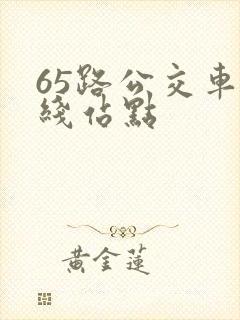 65路公交車
綫佔點
黄金蓮